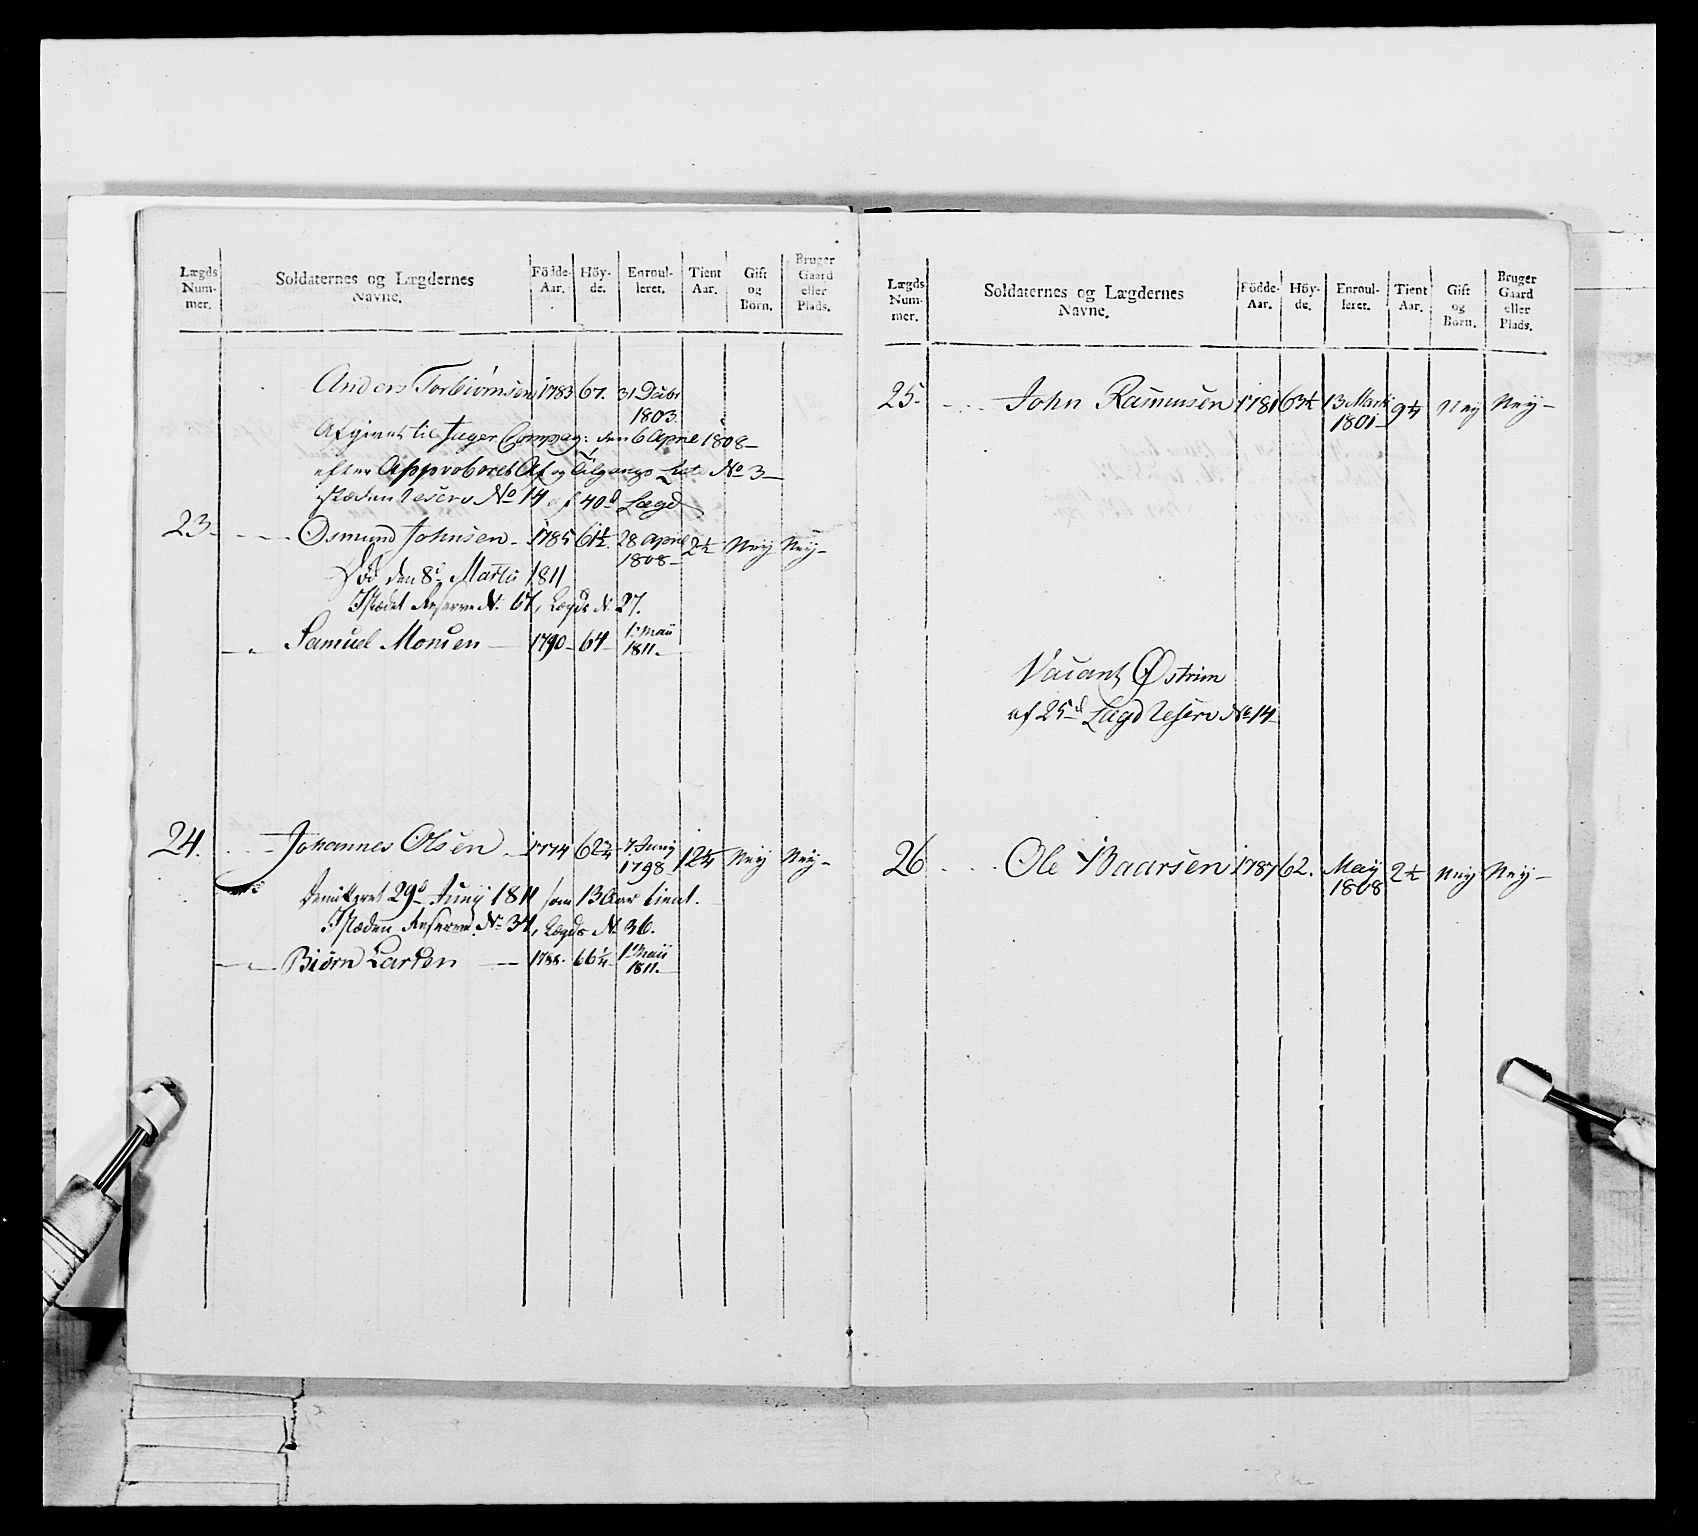 Lægds Num- mer.
Soldaternes og Lægdernes Navne.
Födde- Aar.
Höy- de.
Enroul- leret.
Tient Aar.
Gift og Börn.
Bruger Gaard eller Plads.
Anders Torbiörnsen 1783 67. 31 Decbr 1803.
Afgivet til Jæger Compag: den 6 April 1808 –
efter Approberet Af og Tilgangs Liste No 3 –
istæden reserv No 14 af 40d Lægd
23. Osmund Johnsen – 1785 61½. 28 April 1808 – 2½ Ney Ney –
Död den 8d Martii 1811
Istædet Reserve N. 67, Lægds N. 27.
Samuel Monsen – 1790 – 64 – 1. Maii 1811.
24. Johannes Olsen – 1774 62¾ 7 Juny 1798 12¼ Ney Ney –
Demitteret 29d Juny 1811 som 13 Aar tient.
Istæden Reserve No 34, Lægds N. 36.
Biørn Larsen – 1788. 66¼ 1. Maii 1811.
Lægds Num- mer.
Soldaternes og Lægdernes Navne.
Födde- Aar.
Höy- de.
Enroul- leret.
Tient Aar.
Gift og Börn.
Bruger Gaard eller Plads.
25. John Rasmusen 1781 63½ 13 Marti 1801 – 9¼ Ney Ney –
Vacant Østrim
af 25d Lægd reserv No 14
26 Ole Baarsen 1787 62. May 1808 2½ Ney Ney –